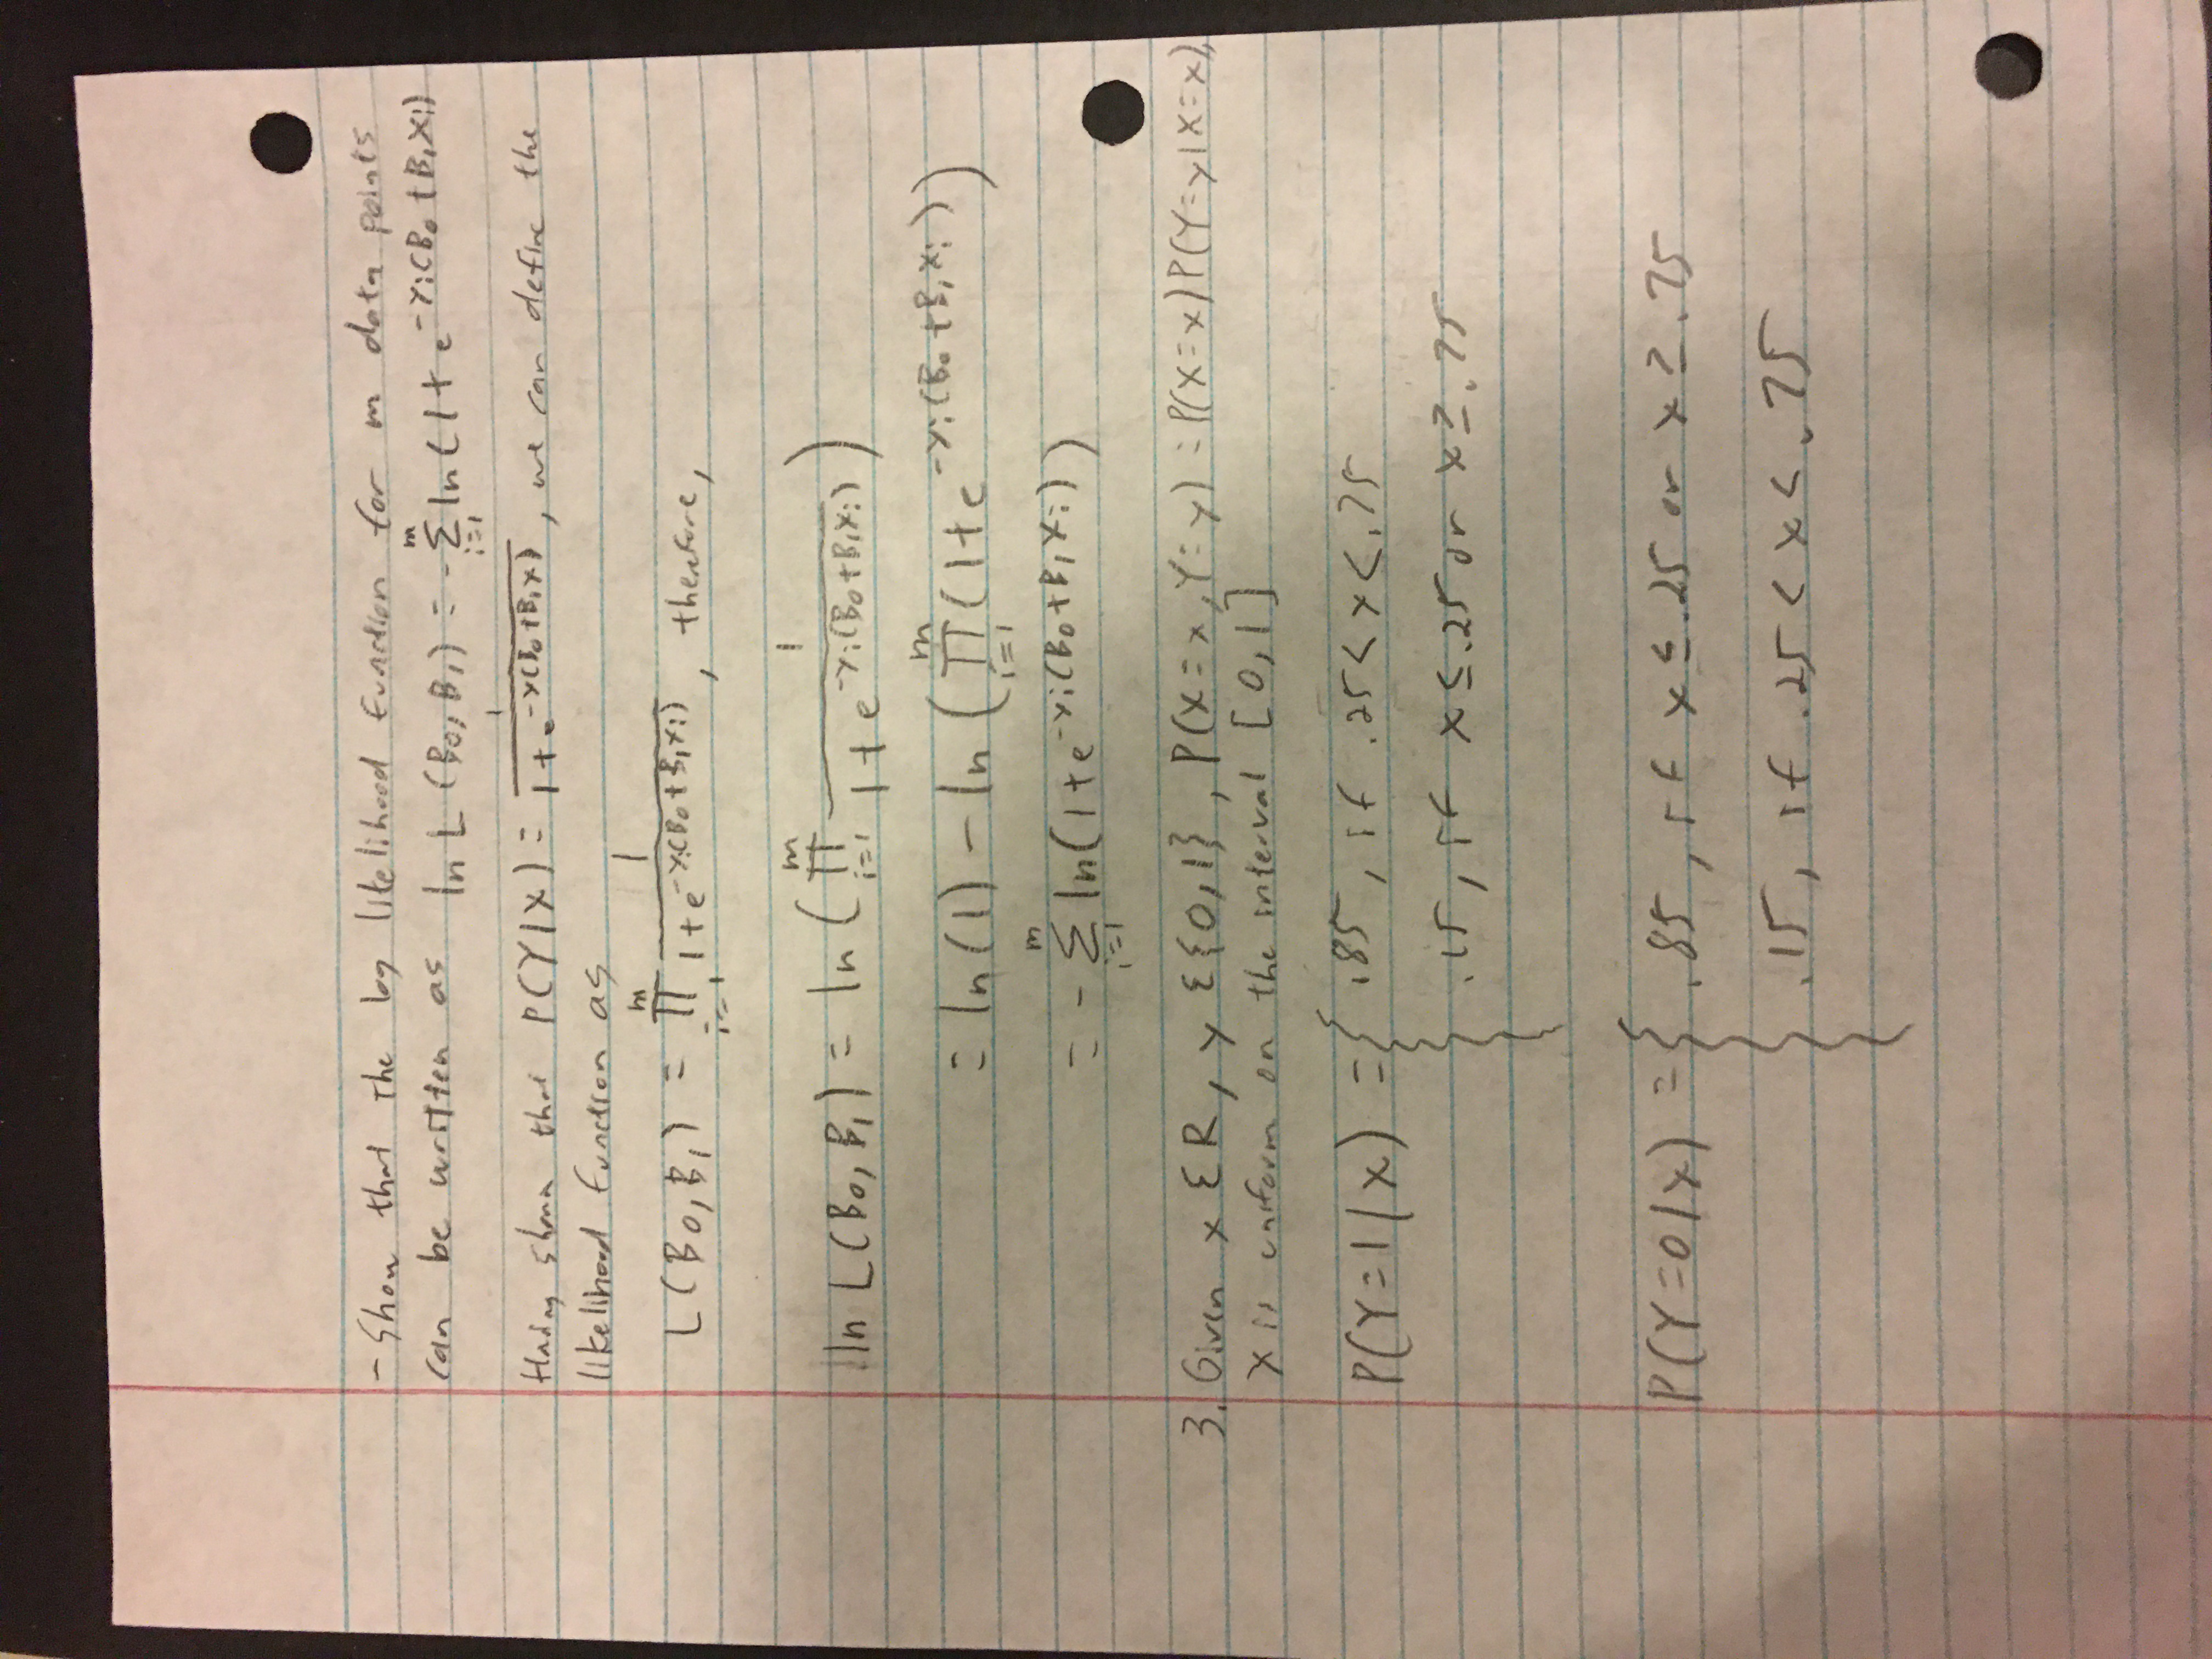 - Show that the log likelihood function for m data points
can be written as ln L (B₀, B₁) = -∑ᵢ₌₁ᵐ ln(1 + e^(-yᵢ(B₀ + B₁xᵢ)
Having shown that P(Y|X) = 1 / (1 + e^(-y(B₀+B₁x))), we can define the
likelihood function as
L(B₀, B₁) = ∏ᵢ₌₁ᵐ 1 / (1 + e^(-yᵢ(B₀+B₁xᵢ))), therefore,
ln L(B₀, B₁) = ln (∏ᵢ₌₁ᵐ 1 / (1 + e^(-yᵢ(B₀+B₁xᵢ))))
= ln(1) - ln (∏ᵢ₌₁ᵐ (1 + e^(-yᵢ(B₀+B₁xᵢ)))
= -∑ᵢ₌₁ᵐ ln(1 + e^(-yᵢ(B₀+B₁xᵢ)))
3. Given x ∈ R, y ∈ {0,1}, P(X=x, Y=y) = P(X=x)P(Y=y|X=x),
X is uniform on the interval [0,1]
P(Y=1|x) = { .85, if .25 < x < .75
.15, if x ≤ .25 or x ≥ .75
P(Y=0|x) = { .85, if x ≤ .25 or x ≥ .75
.15, if .25 < x < .75